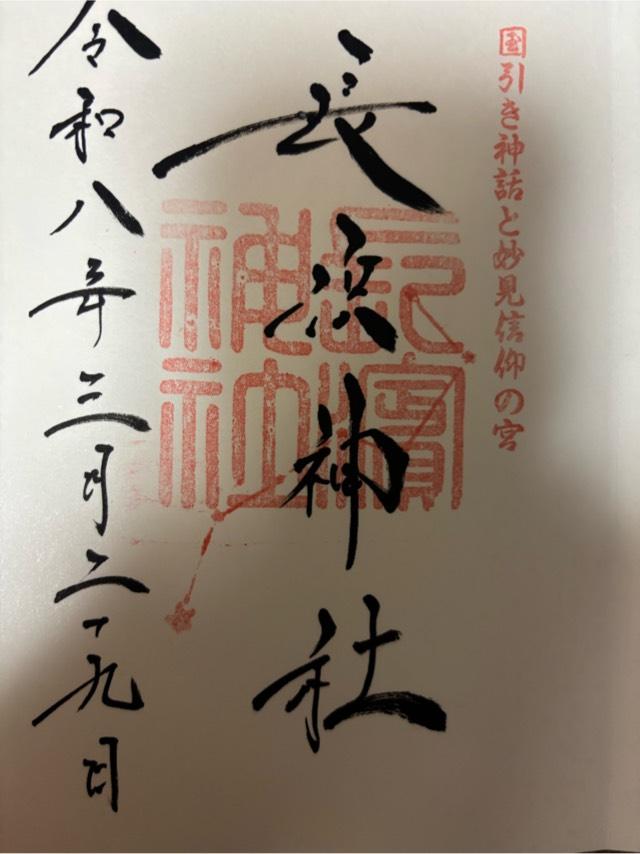 国引き神話と妙見信仰の宮
長浜神社
長濱神社
令和八年三月二十九日